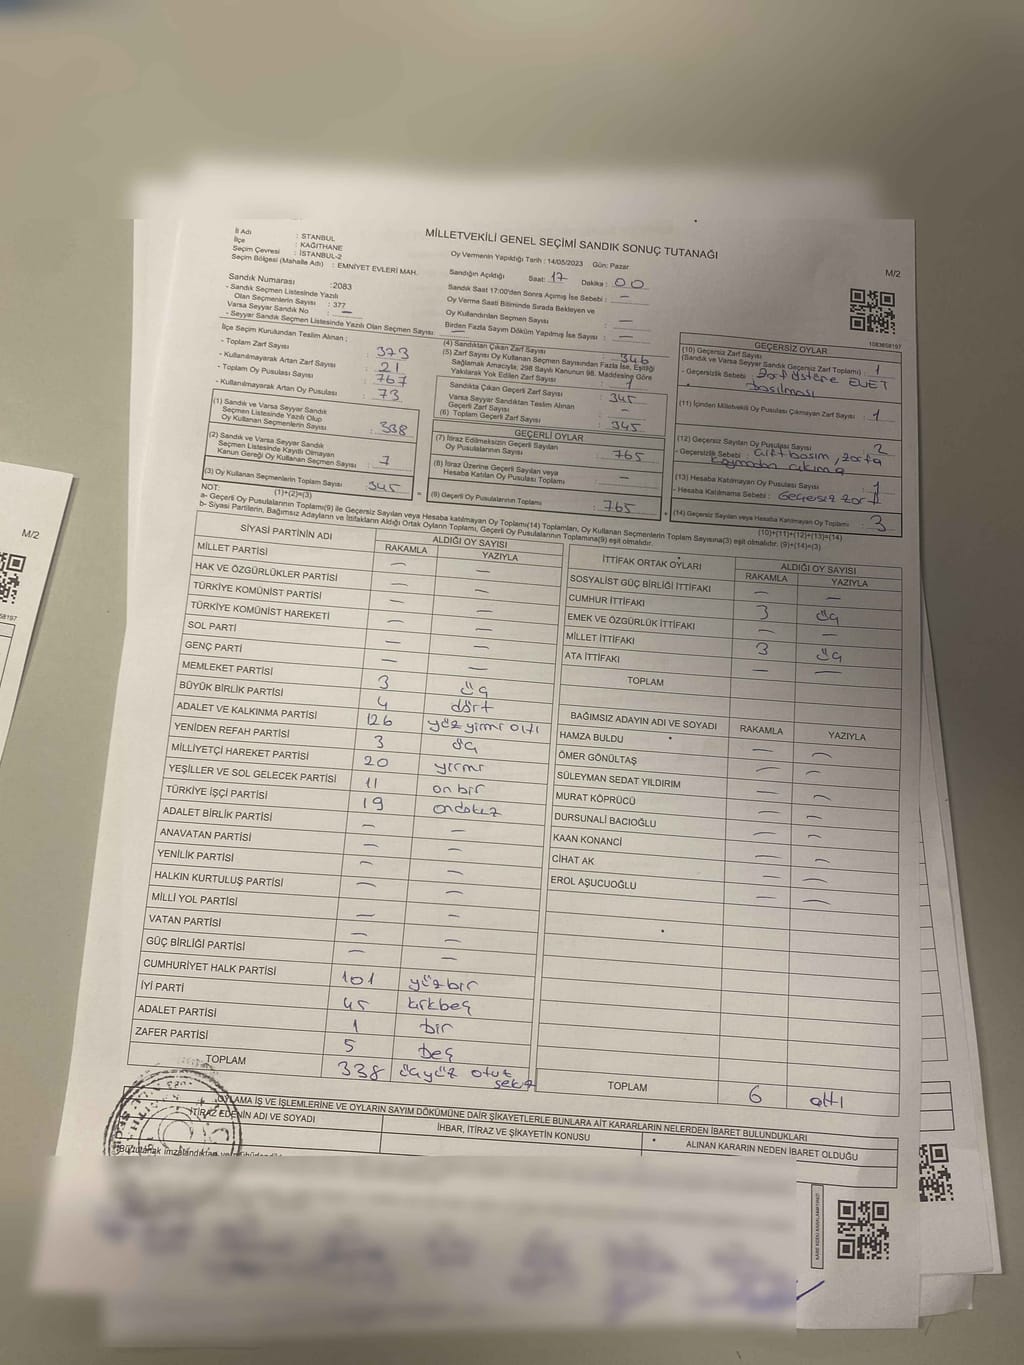 MİLLETVEKİLİ GENEL SEÇİMİ SANDIK SONUÇ TUTANAĞI
M/2
İl Adı : STANBUL
İlçe : KAĞITHANE
Seçim Çevresi : İSTANBUL-2
Seçim Bölgesi (Mahalle Adı) : EMNİYET EVLERİ MAH.
Oy Vermenin Yapıldığı Tarih : 14/05/2023 Gün: Pazar
Sandığın Açıldığı Saat: 17 Dakika : 00
Sandık Saat 17:00'den Sonra Açımış İse Sebebi : —
Oy Verme Saati Bitiminde Sırada Bekleyen ve
Oy Kullandırılan Seçmen Sayısı : —
Birden Fazla Sayım Döküm Yapılmış İse Sayısı : —
Sandık Numarası :2083
- Sandık Seçmen Listesinde Yazılı
Olan Seçmenlerin Sayısı : 377
Varsa Seyyar Sandık No : —
- Seyyar Sandık Seçmen Listesinde Yazılı Olan Seçmen Sayısı: —
1083658197
İlçe Seçim Kurulundan Teslim Alınan ;
- Toplam Zarf Sayısı : 373
- Kullanılmayarak Artan Zarf Sayısı : 21
- Toplam Oy Pusulası Sayısı : 767
- Kullanılmayarak Artan Oy Pusulası : 73
(1) Sandık ve Varsa Seyyar Sandık
Seçmen Listesinde Yazılı Olup
Oy Kullanan Seçmenlerin Sayısı : 338
(2) Sandık ve Varsa Seyyar Sandık
Seçmen Listesinde Kayıtlı Olmayan
Kanun Gereği Oy Kullanan Seçmen Sayısı : 7
(3) Oy Kullanan Seçmenlerin Toplam Sayısı : 345
(1)+(2)=(3)
(4) Sandıktan Çıkan Zarf Sayısı : 346
(5) Zarf Sayısı Oy Kullanan Seçmen Sayısından Fazla İse, Eşitliği
Sağlamak Amacıyla, 298 Sayılı Kanunun 98. Maddesine Göre
Yakılarak Yok Edilen Zarf Sayısı : 1
Sandıkta Çıkan Geçerli Zarf Sayısı : 345
Varsa Seyyar Sandıktan Teslim Alınan
Geçerli Zarf Sayısı : —
(6) Toplam Geçerli Zarf Sayısı : 345
GEÇERLİ OYLAR
(7) İtiraz Edilmeksizin Geçerli Sayılan
Oy Pusulalarının Sayısı : 765
(8) İtiraz Üzerine Geçerli Sayılan veya
Hesaba Katılan Oy Pusulası Toplamı : —
(9) Geçerli Oy Pusulalarının Toplamı : 765
GEÇERSİZ OYLAR
(10) Geçersiz Zarf Sayısı
(Sandık ve Varsa Seyyar Sandık Geçersiz Zarf Toplamı) : 1
- Geçersizlik Sebebi : Zarf üstüne EVET
basılması
(11) İçinden Milletvekili Oy Pusulası Çıkmayan Zarf Sayısı : 1
(12) Geçersiz Sayılan Oy Pusulası Sayısı : 2
- Geçersizlik Sebebi : Çift basım, zarfa
koymadan
(13) Hesaba Katılmayan Oy Pusulası Sayısı : 1
- Hesaba Katılmama Sebebi : Geçersiz zarf
(14) Geçersiz Sayılan veya Hesaba Katılmayan Oy Toplamı : 3
(10)+(11)+(12)+(13)=(14)
NOT:
a- Geçerli Oy Pusulalarının Toplamı(9) ile Geçersiz Sayılan veya Hesaba katılmayan Oy Toplamı(14) Toplamları, Oy Kullanan Seçmenlerin Toplam Sayısına(3) eşit olmalıdır. (9)+(14)=(3)
b- Siyasi Partilerin, Bağımsız Adayların ve İttifakların Aldığı Ortak Oyların Toplamı, Geçerli Oy Pusulalarının Toplamına(9) eşit olmalıdır.
SİYASİ PARTİNİN ADI ALDIĞI OY SAYISI
RAKAMLA YAZIYLA
MİLLET PARTİSİ — —
HAK VE ÖZGÜRLÜKLER PARTİSİ — —
TÜRKİYE KOMÜNİST PARTİSİ — —
TÜRKİYE KOMÜNİST HAREKETİ — —
SOL PARTİ — —
GENÇ PARTİ — —
MEMLEKET PARTİSİ 3 üç
BÜYÜK BİRLİK PARTİSİ 4 dört
ADALET VE KALKINMA PARTİSİ 126 yüz yirmi altı
YENİDEN REFAH PARTİSİ 3 üç
MİLLİYETÇİ HAREKET PARTİSİ 20 yirmi
YEŞİLLER VE SOL GELECEK PARTİSİ 11 on bir
TÜRKİYE İŞÇİ PARTİSİ 19 ondokuz
ADALET BİRLİK PARTİSİ — —
ANAVATAN PARTİSİ — —
YENİLİK PARTİSİ — —
HALKIN KURTULUŞ PARTİSİ — —
MİLLİ YOL PARTİSİ — —
VATAN PARTİSİ — —
GÜÇ BİRLİĞİ PARTİSİ — —
CUMHURİYET HALK PARTİSİ 101 yüzbir
İYİ PARTİ 45 kırkbeş
ADALET PARTİSİ 1 bir
ZAFER PARTİSİ 5 beş
TOPLAM 338 üçyüz otuz
sekiz
İTTİFAK ORTAK OYLARI ALDIĞI OY SAYISI
RAKAMLA YAZIYLA
SOSYALİST GÜÇ BİRLİĞİ İTTİFAKI — —
CUMHUR İTTİFAKI 3 üç
EMEK VE ÖZGÜRLÜK İTTİFAKI — —
MİLLET İTTİFAKI 3 üç
ATA İTTİFAKI — —
TOPLAM
BAĞIMSIZ ADAYIN ADI VE SOYADI RAKAMLA YAZIYLA
HAMZA BULDU — —
ÖMER GÖNÜLTAŞ — —
SÜLEYMAN SEDAT YILDIRIM — —
MURAT KÖPRÜCÜ — —
DURSUNALİ BACIOĞLU — —
KAAN KONANCİ — —
CİHAT AK — —
EROL AŞUCUOĞLU — —
TOPLAM 6 altı
OYLAMA İŞ VE İŞLEMLERİNE VE OYLARIN SAYIM DÖKÜMÜNE DAİR ŞİKAYETLERLE BUNLARA AİT KARARLARIN NELERDEN İBARET BULUNDUKLARI
İTİRAZ EDENİN ADI VE SOYADI
İHBAR, İTİRAZ VE ŞİKAYETİN KONUSU
ALINAN KARARIN NEDEN İBARET OLDUĞU
M/2